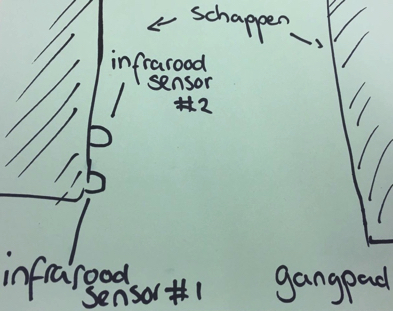 schappen
infrarood
sensor
#2
infrarood
sensor #1
gangpad